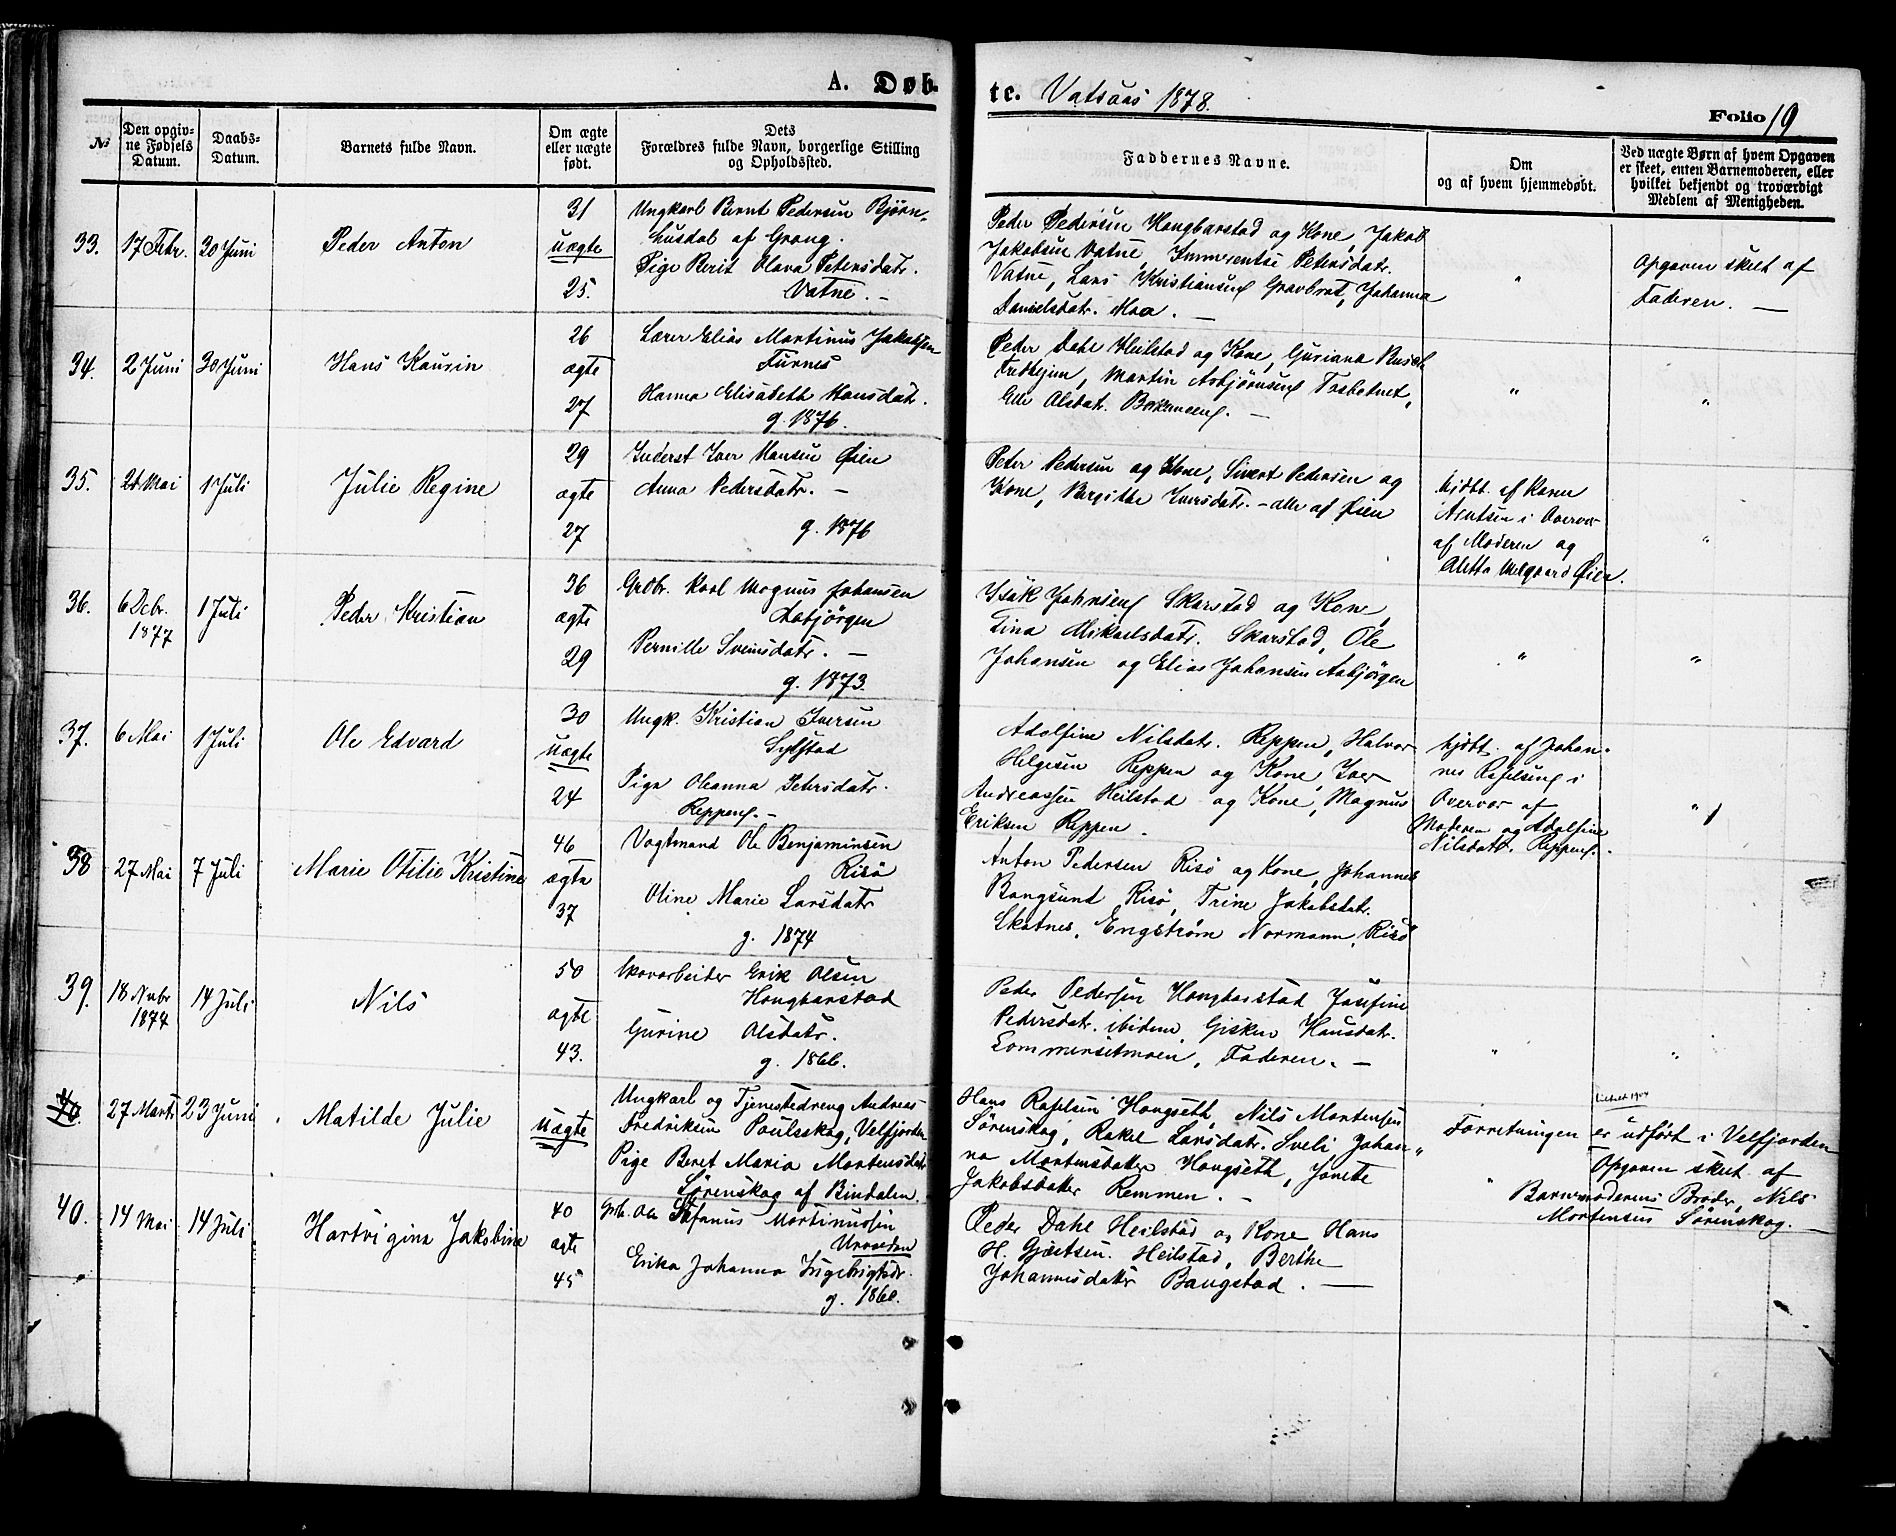 A. Døb-
te. Vatsaas 1878.
Folio 19
№
Den opgiv-
ne Fødsels
Datum.
Daabs-
Datum.
Barnets fulde Navn.
Om ægte
eller uægte
født.
Dets
Forældres fulde Navn, borgerlige Stilling
og Opholdssted.
Faddernes Navne.
Om
og af hvem hjemmedøbt.
Ved uægte Børn af hvem Opgaven
er skeet, enten Barnemoderen, eller
hvilket bekjendt og troværdigt
Medlem af Menigheden.
33.
17 Febr.
30 Juni
Peder Anton
31
uægte
25.
Ungkarl Bernt Pedersen Bjørn-
husdal af Grong.
Pige Berit Olava Petersdatr.
Vatne. —
Peder Pedersen Hongbarstad og Kone, Jakob
Jakobsen Vatne, Petersdatr.
Vatne, Lars Kristiansen Gravbrøt, Johanna
Danielsdatr. Moa. —
"
Opgaven skeet af
Faderen. —
34.
2 Juni
30 Juni
Hans Kaurin
26
ægte
27
Lærer Elias Martinus Jakobsen
Furnes
Hanna Elisabeth Hansdatr.
g. 1876.
Peder Dahl Heilstad og Kone, Guriana
Martin Asbjørnsen Tosbotnet,
Elle Olsdatr.
"
"
35.
Mai
1 Juli
Julie Regine
29
ægte
27
Inderst Iver Hansen Øien
Anna Pedersdatr. —
g. 1876
Peter Pedersen og Kone, Sivert Pedersen og
Kone, Bergithe Iversdatr. – alle af Øien
hjdbt. af Karen
Arntsen i Overvær
af Moderen og
Aletta Melgaard Øien.
"
36.
6 Dcbr.
1877
1 Juli
Peder Kristian
36
ægte
29
Grdbr. Karl Magnus Johansen
Aabjörgen
Pernille Svensdatr. —
g. 1873.
Isak Johnsen Skarstad og Kone,
Lina Mikaelsdatr. Skarstad, Ole
Johansen og Elias Johansen Aabjörgen
"
"
37.
6 Mai
1 Juli
Ole Edvard
30
uægte
24
Ungk. Kristian Iversen
Sylstad
Pige Oleanna Petersdatr.
Reppen. —
Adolfine Nilsdatr. Reppen, Halvor
Helgesen Reppen og Kone, Iver
Andreassen Heilstad og Kone, Magnus
Eriksen Reppen.
hjdbt. af Johan-
nes i
Overvær af
Moderen og Adolfine
Nilsdatr. Reppen.
"
38
27 Mai
7 Juli
Marie Otilie Kristine
46
ægte
37
Vogtmand Ole Benjaminsen
Risö
Oline Marie Larsdatr
g. 1874
Anton Pedersen Risö og Kone, Johannes
Bangsund Risö, Trine Jakobsdatr.
Skatnes, Engström Normann, Risö
39.
18 Nvbr
1877
14 Juli
Nils
50
ægte
43.
Skovarbeider Erik Olsen
Hongbarstad
Gurine Olsdatr.
g. 1866.
Peder Pedersen Hongbarstad Josefine
Pedersdatr. ibidem, Gisken Hansdatr.
Sommersetmoen, Faderen. —
"
"
40.
27 Marts
23 Juni
Matilde Julie
uægte
Ungkarl og Tjenestedreng Andreas
Fredriksen Poulsskog, Velfjorden
Pige Beret Maria Mortensdatr
Sørenskog af Bindalen.
Hans Hongseth, Nils Mortensen
Sørenskog, Rakel Larsdatr. Sveli Johan-
na Mortensdatter Hongseth, Jonette
Jakobsdatter Remmen. —
"
Forretningen er udført i Velfjorden
Opgaven skeet af
Barnemoderens Broder, Nils
Mortensen Sørenskog. —
40.
14 Mai
14 Juli
Hartvigine Jakobine
40
ægte
45
Grb. Ole Stefanus Martinussen
Urvolden
Erika Johanna Ingebrigtsdr.
g. 1860.
Peder Dahl Heilstad og Kone Hans
H. Gjertsen. Heilstad, Berthe
Johannesdatter Bangstad. —